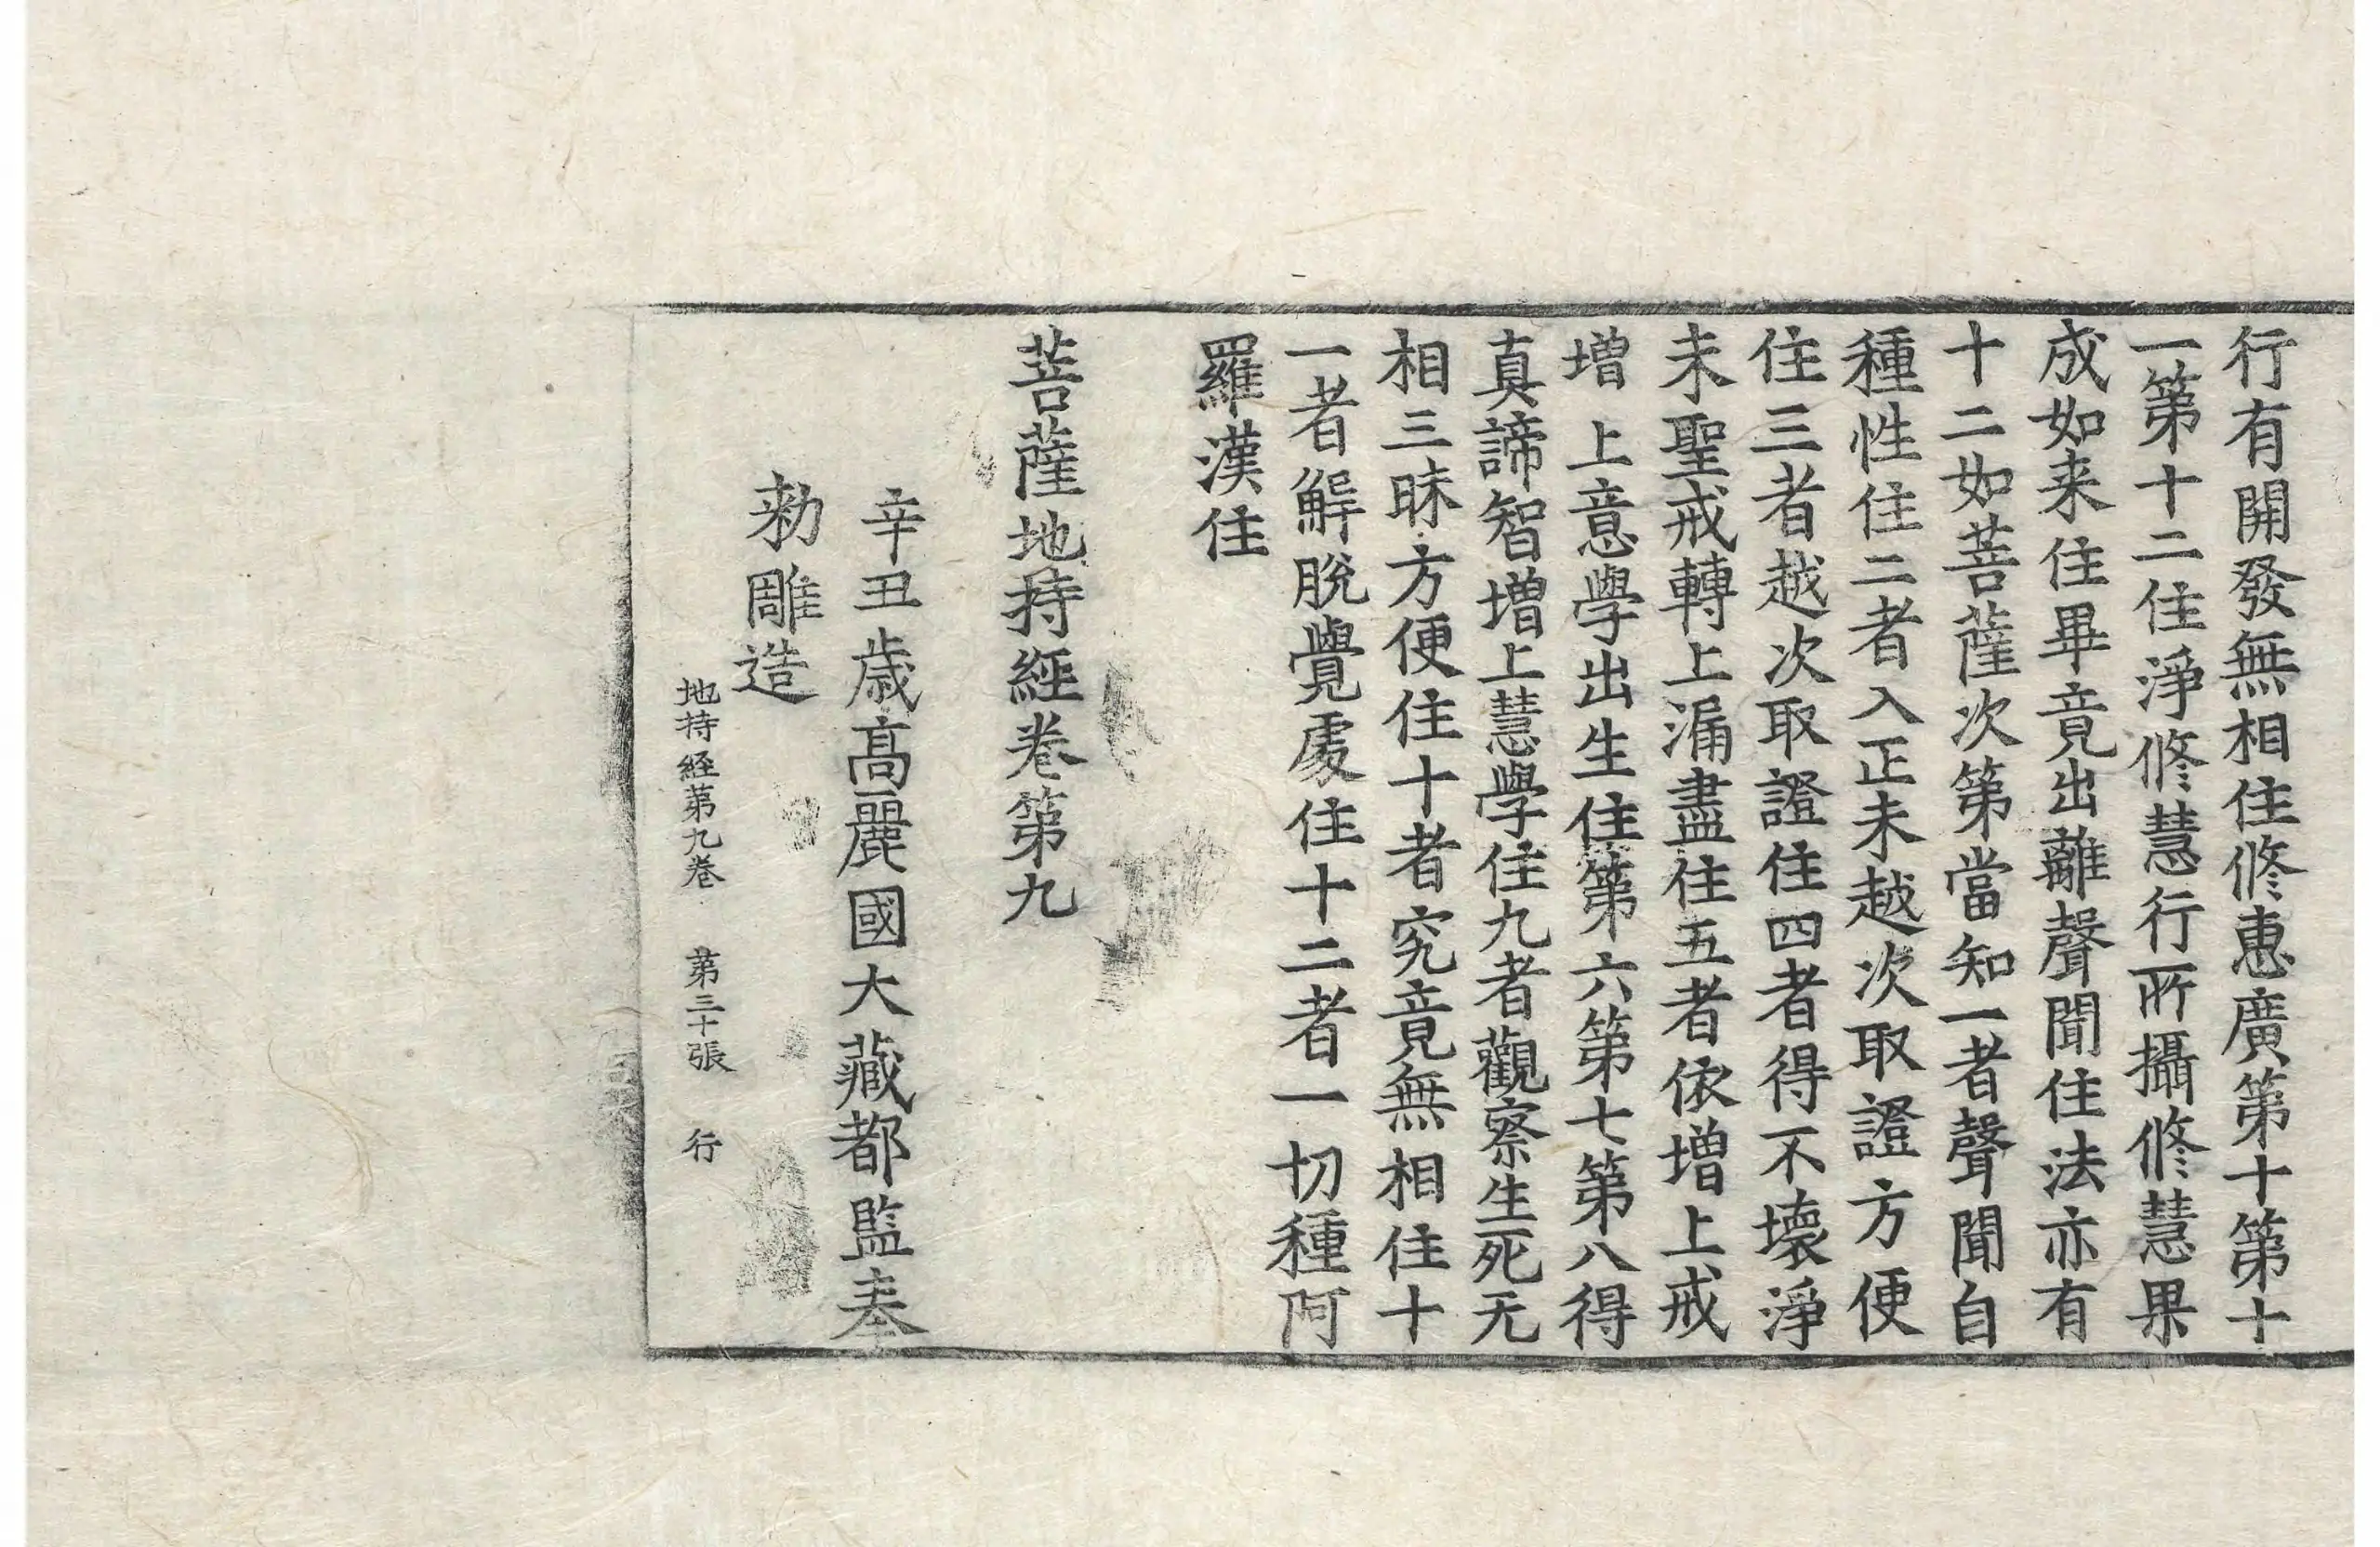 行有開發無相住修惠廣第十第十
一第十二住淨修慧行所攝修慧果
成如来住畢竟出離聲聞住法亦有
十二如菩薩次第當知一者聲聞自
種性住二者入正未越次取證方便
住三者越次取證住四者得不壞淨
未聖戒轉上漏盡住五者依增上戒
增上意學出生住第六第七第八得
真諦智增上慧學住九者觀察生死无
相三昧方便住十者究竟無相住十
一者解脫覺處住十二者一切種阿
羅漢住
菩薩地持經卷第九
辛丑歲高麗國大藏都監奉
勅雕造
地持経第九卷 第三十張 行